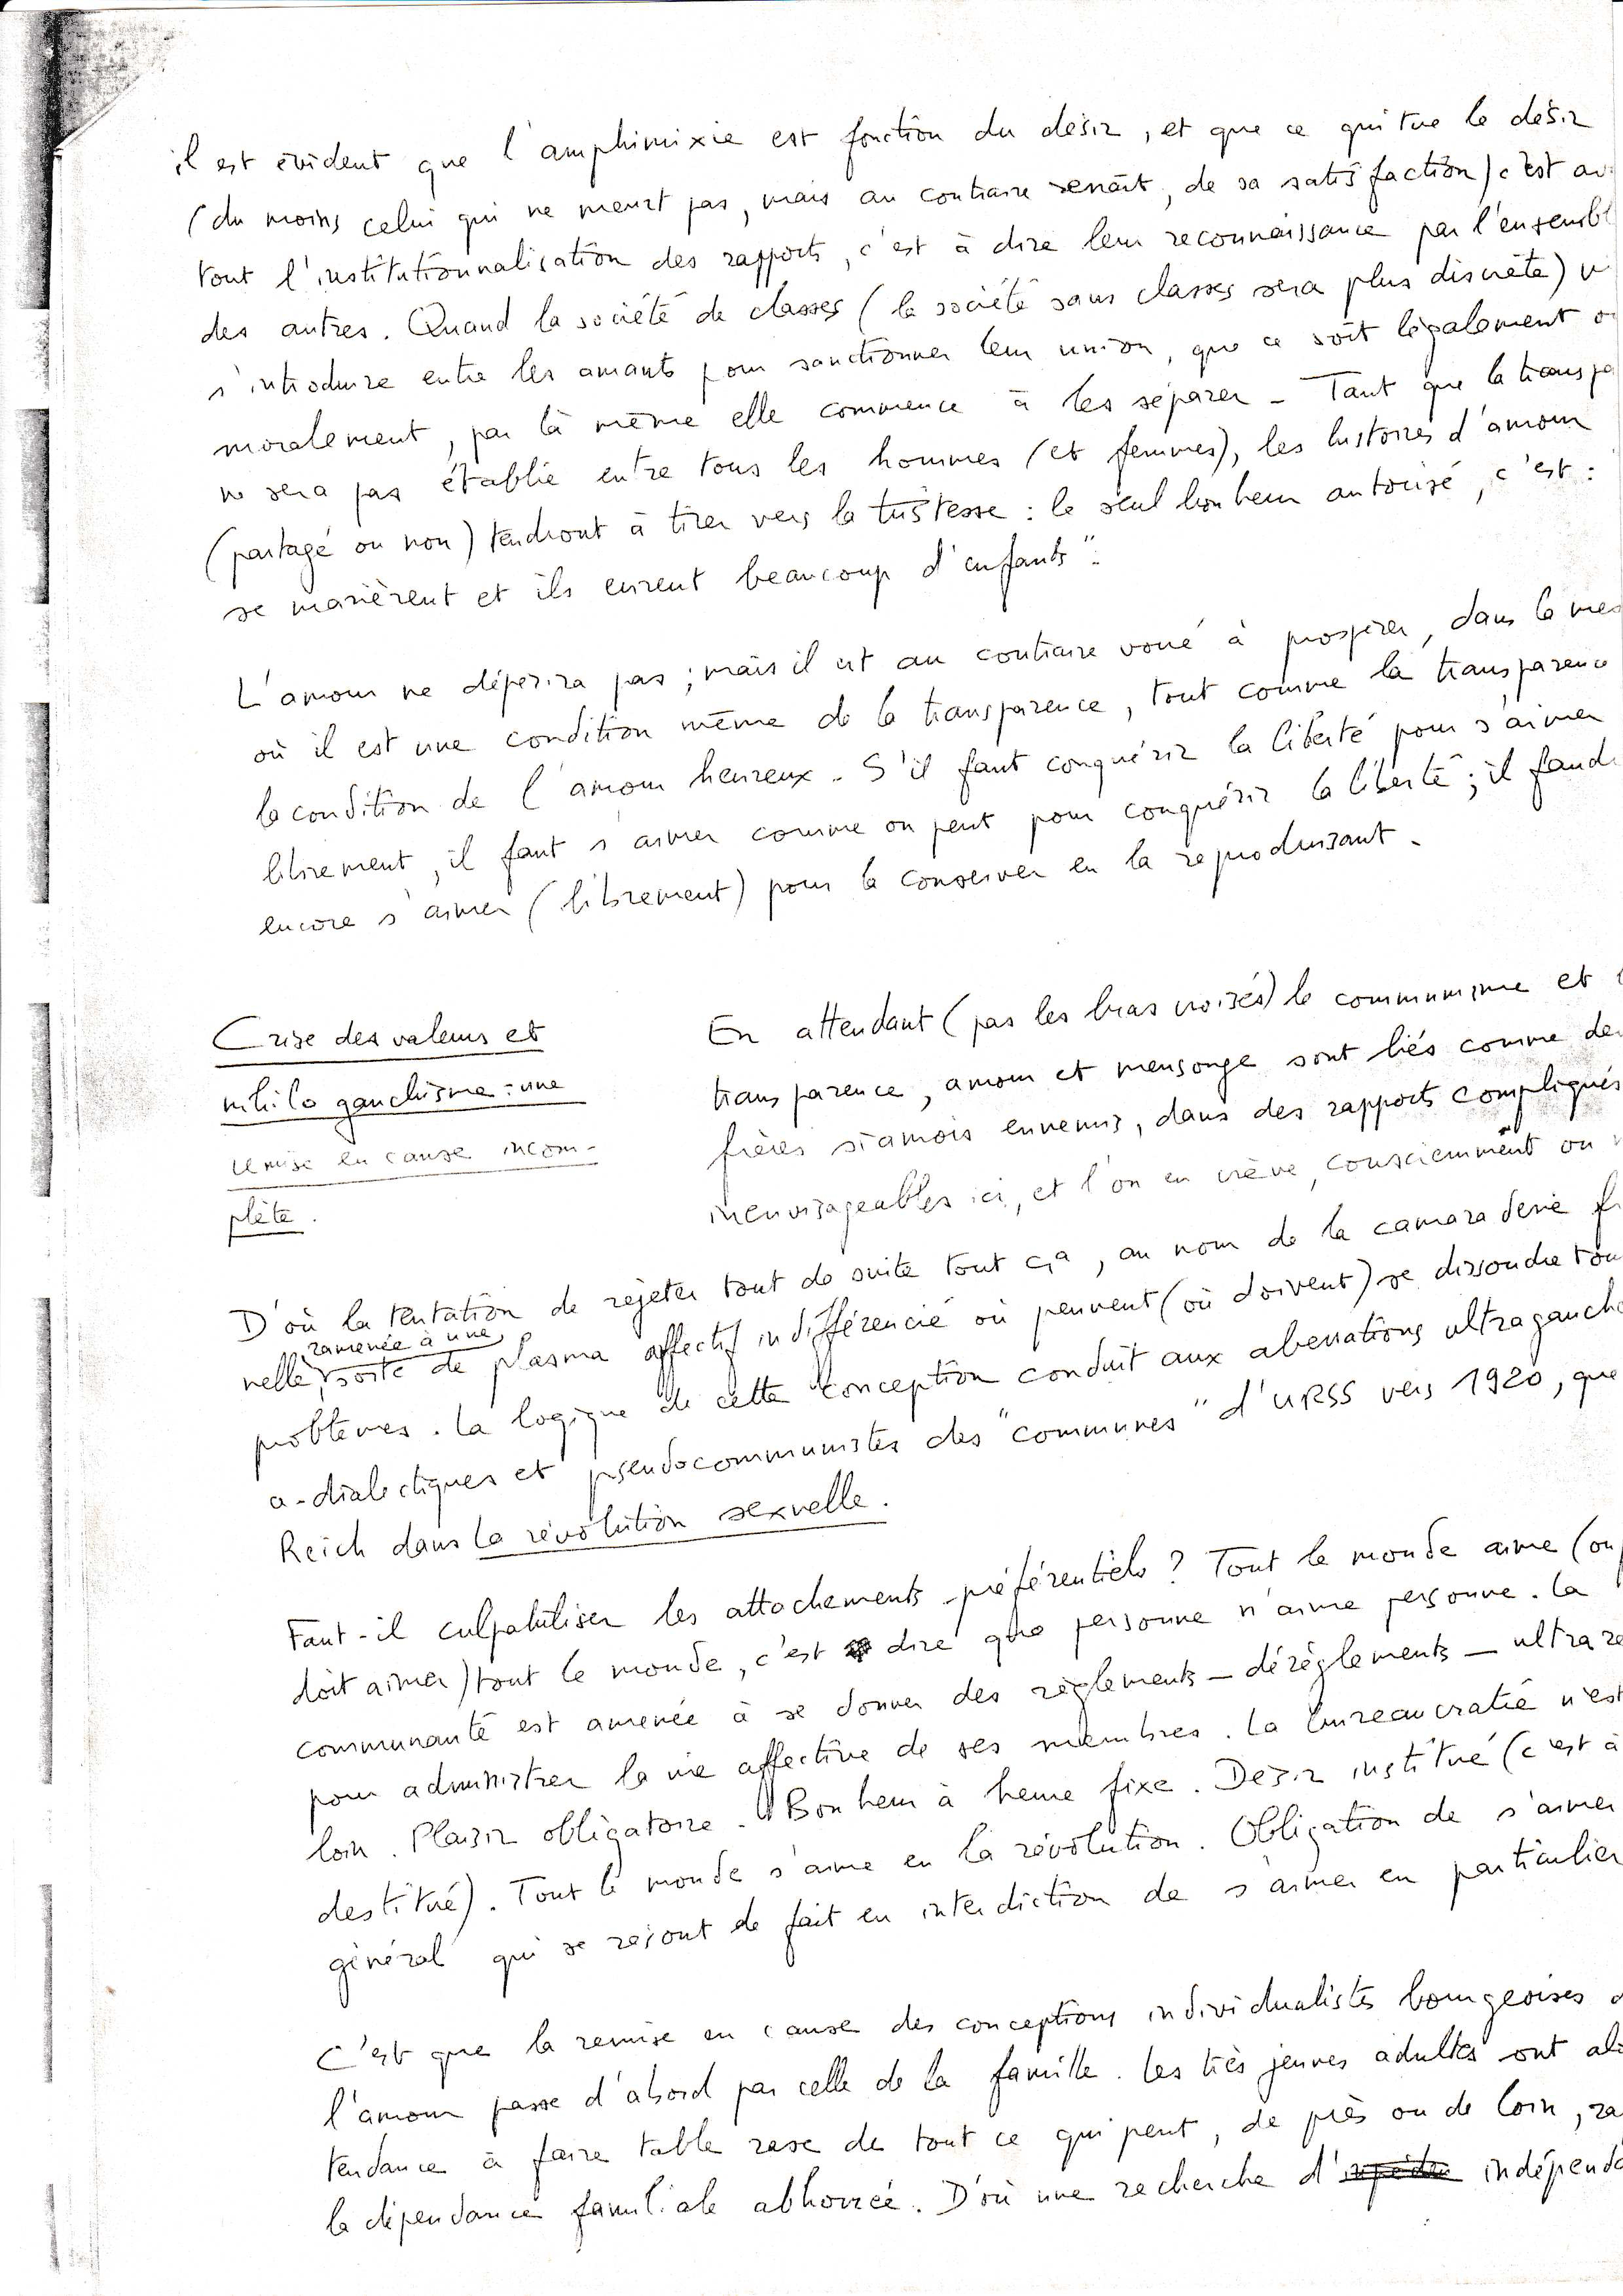 il est évident que l'amphimixie est fonction du désir, et que ce qui tue le désir
(du moins celui qui ne meurt pas, mais au contraire renaît, de sa satisfaction) c'est av
tout l'institutionnalisation des rapports, c'est à dire leur reconnaissance par l'ensembl
des autres. Quand la société de classes (la société sans classes sera plus discrète) v
s'introduire entre les amants pour sanctionner leur union, que ce soit légalement o
moralement, par là même elle commence à les séparer - Tant que la transpa
ne sera pas établie entre tous les hommes (et femmes), les histoires d'amour
(partagé ou non) tendront à tirer vers la tristesse : le seul bonheur autorisé, c'est :
se marièrent et ils eurent beaucoup d'enfants".
L'amour ne dépérira pas ; mais il est au contraire voué à prospérer, dans la mes
où il est une condition même de la transparence, tout comme la transparence
la condition de l'amour heureux. S'il faut conquérir la liberté pour s'aimer
librement, il faut s'aimer comme on peut pour conquérir la liberté ; il faud
encore s'aimer (librement) pour la conserver en la reproduisant.
Crise des valeurs et
nihilo gauchisme : une
remise en cause incom-
plète.
En attendant (pas les bras croisés) le communisme et
transparence, amour et mensonge sont liés comme de
frères siamois ennemis, dans des rapports compliqués
inenvisageables ici, et l'on en crève, consciemment ou
D'où la tentation de rejeter tout de suite tout ça, au nom de la camaraderie fr
ramenée à une
nelle, sorte de plasma affectif indifférencié où peuvent (où doivent) se dissoudre tou
problèmes. La logique de cette conception conduit aux aberrations ultragauche
a-dialectiques et pseudocommunistes des "communes" d'URSS vers 1920, que
Reich dans la révolution sexuelle.
Faut-il culpabiliser les attachements préférentiels ? Tout le monde aime (ou
doit aimer) tout le monde, c'est dire que personne n'aime personne. La
communauté est amenée à se donner des règlements - dérèglements - ultra ré
pour administrer la vie affective de ses membres. La bureaucratie n'est
loin. Plaisir obligatoire. Bonheur à heure fixe. Désir institué (c'est à
destitué). Tout le monde s'aime en la révolution. Obligation de s'aimer
général qui se résout de fait en interdiction de s'aimer en particulier
C'est que la remise en cause des conceptions individualistes bourgeoises d
l'amour passe d'abord par celle de la famille. Les très jeunes adultes ont alo
tendance à faire table rase de tout ce qui peut, de près ou de loin, ra
la dépendance familiale abhorrée. D'où une recherche d' indépenda